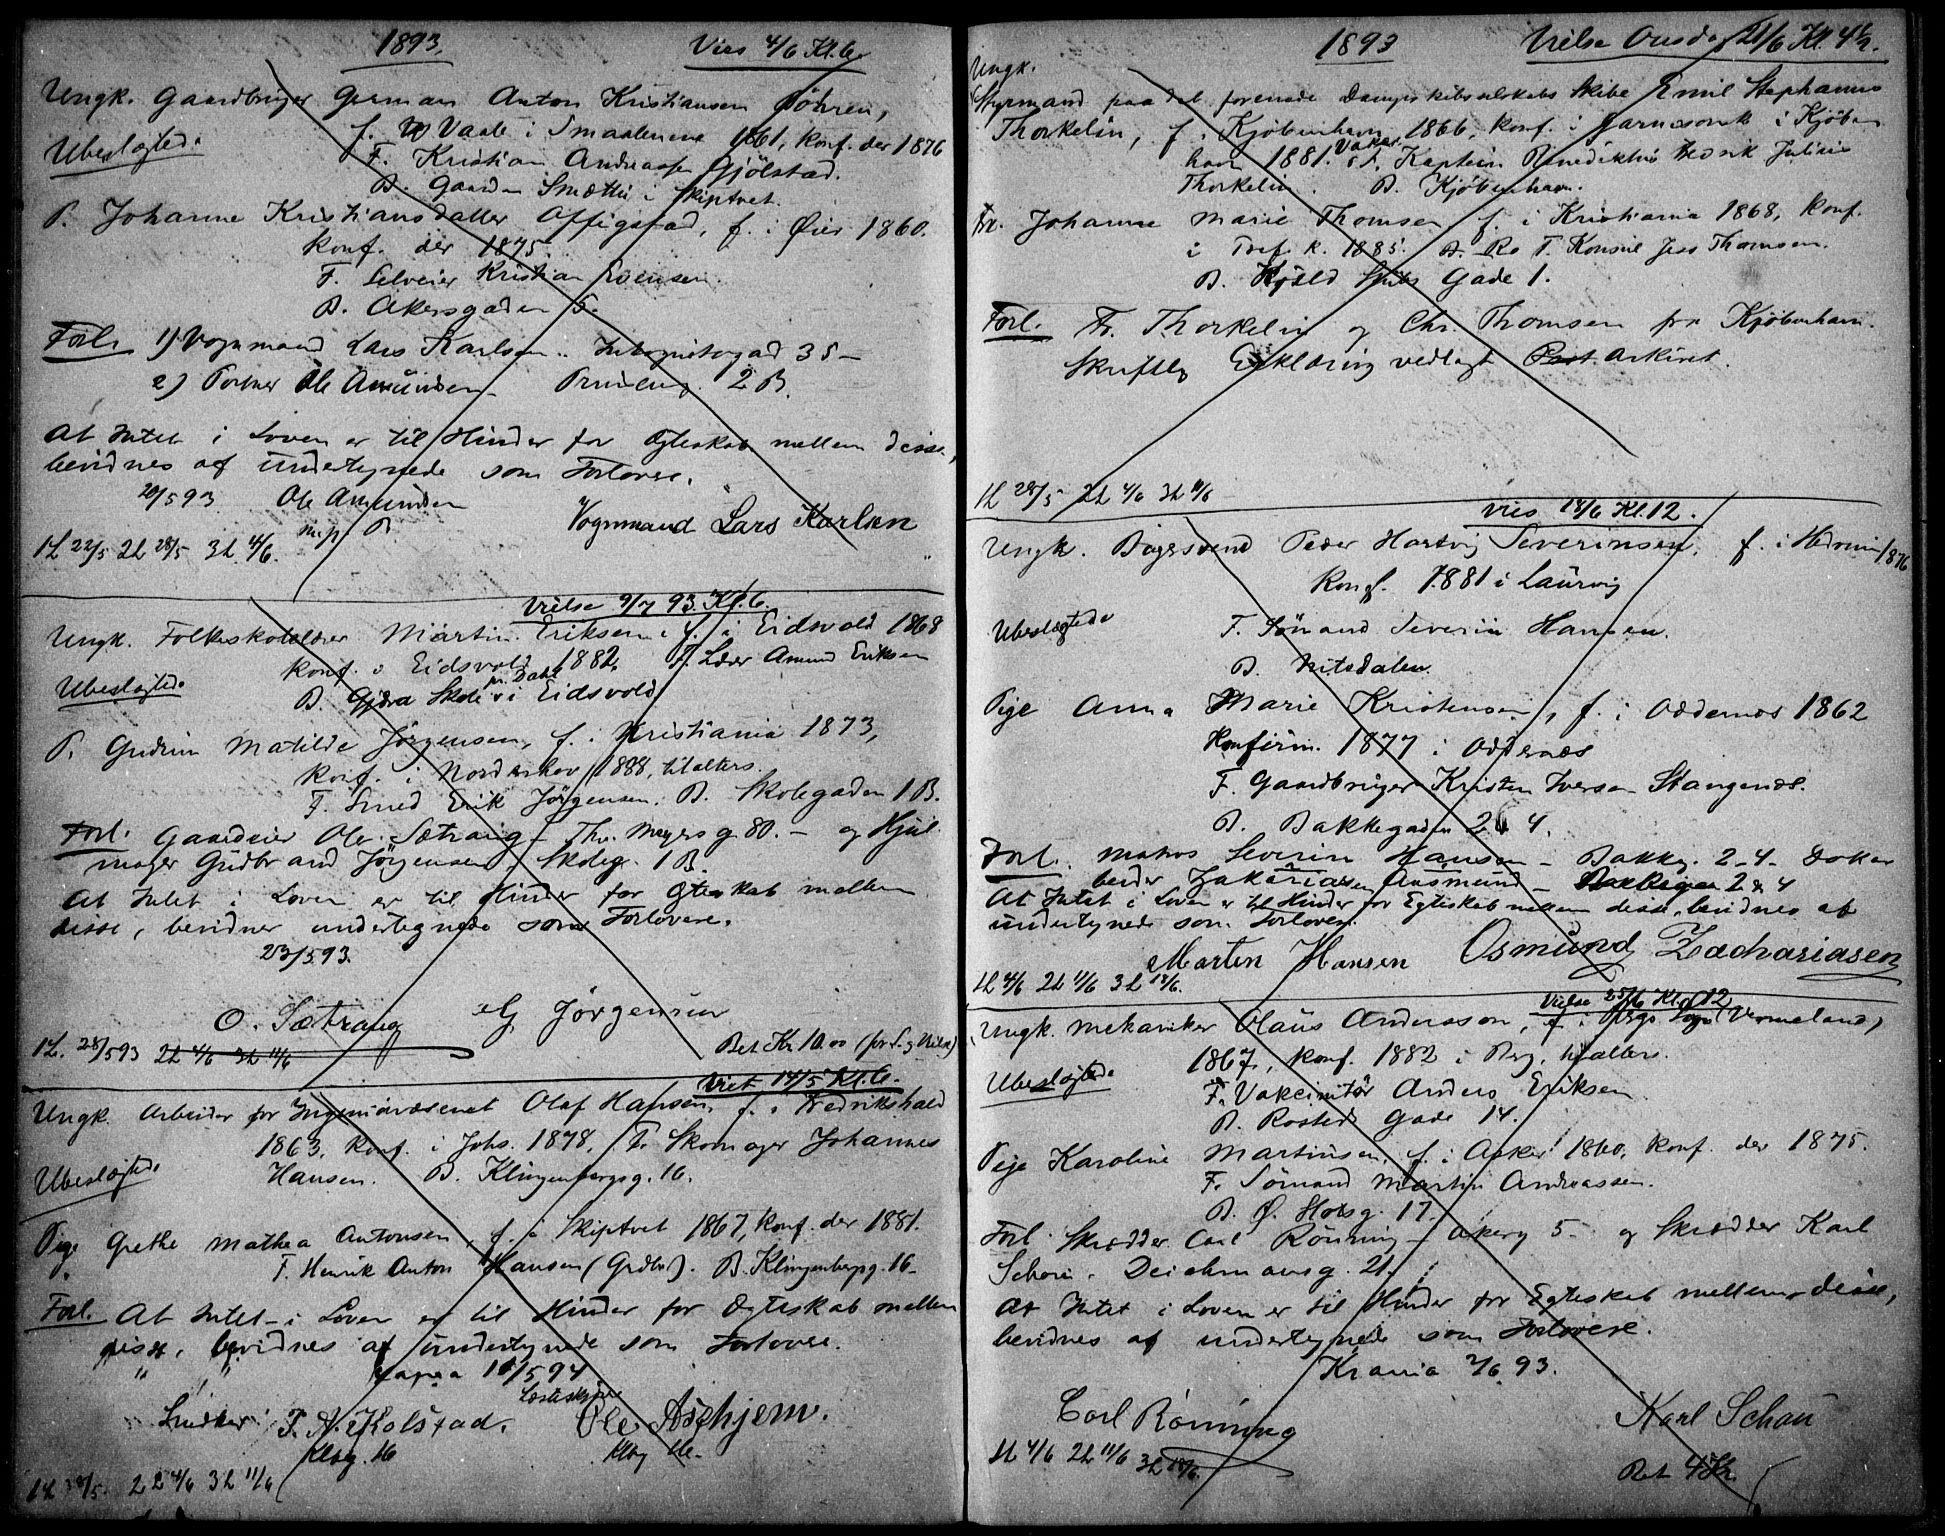 1893. Vies 4/6 Kl. 6.
Ungk. Gaardbruger German Anton Kristiansen
Ubeslægtede f. Vaale i Smaalenene 1861, konf. der 1876
F. Kristian Andreasse Gjölstad.
B. Gaarden i Skiptvet.
P. Johanne Kristiansdatter f. i Öier 1860.
konf. der 1875.
F. Selveier Kristian Evensen
B. Akersgaden 5.
Forl. 1) Vognmand Lars Karlsen 35 –
2) Ole Amundsen – 2 B.
At Intet i Loven er til Hinder for Ægteskab mellem disse,
bevidnes af undertegnede som Forlovere.
20/5 93. Ole Amundsen
m.p. P. Vognmand Lars Karlsen
1L 22/5 2L 28/5 3L 4/6.
Vielse 9/7 93. Kl. 6.
Ungk. Folkeskolelærer Martin Eriksen, f. i Eidsvold 1868
konf. i Eidsvold 1882. F. Lærer Amund Eriksen
Ubeslægtede B. Gjöra Skole pr. Dahl i Eidsvold
P. Gudrun Matilde Jörgensen, f. i Kristiania 1873,
konf. i Norderhov 1888, tilalters.
F. Smed Erik Jörgensen. B. Skolegaden 1 B.
Forl. Gaardeier Ole Sætrang – Th. Meyers g. 80. – og Hjul-
mager Gudbrand Jörgensen Skoleg. 1 B.
At Intet i Loven er til Hinder for Ægteskab mellem
disse, bevidner undertegnede som Forlovere.
23/5 93.
O. Sætrang G Jörgensen
1L. 28/5 93 2L 4/6 3L 11/6 Bet Kr 10.00
Viet 14/5 Kl. 6.
Ungk. Arbeider for Ingeniörvæsenet Olaf Hansen, f. i Fredrikshald
1863, konf. i Johs. 1878. F. Skomager Johannes
Ubeslægtede Hansen. B. Klingenbergsg. 16.
Pige Grethe Mathea Antonsen, f. i Skiptvet 1867, konf. der 1881.
F. Henrik Anton Hansen (Grdbr). B. Klingenbergsg. 16 –
Forl. At Intet i Loven er til Hinder for Ægteskab mellem
disse, bevidnes af undertegnede som Forlovere.
10/5 94
Snedker F. A. Kolstad. Ole Askhjem.
Klbg. 16 Klbg
1L 28/5. 2L 4/6 3L 11/6
1893 Vielse Onsdag 21/6 Kl. 4½.
Ungk.
Styrmand paa det forenede Dampskibsselskabs Skibe Emil Stephanus
Thorkelin, f. i Kjöbenhavn 1866, konf. i Garnisonsk. i Kjöben
havn 1881. F. Kaptein Benediktus Fredrik Julius
Thorkelin. B. Kjöbenhavn.
Fr. Johanne Marie Thomsen f. i Kristiania 1868, konf.
i Tref. k. 1885. F. Konsul Jess Thomsen.
B. Kjeld Stubs Gade 1.
Forl. Fr. Thorkelin og Chr. Thomsen fra Kjöbenhavn.
Skriftlig Erklæring vedlagt Arkivet.
1L 28/5 2L 4/6 3L 11/6
Vies 18/6 Kl. 12.
Ungk. Bagersvend Peder Hartvig Severinsen, f. i Hedrum 1876
konf. 1881 i Laurvig
Ubeslægtede F. Sömand Severin Hansen.
B. Nitedalen.
Pige Anna Marie Kristensen, f. i Oddernes 1862
Konfirm. 1877 i Oddernæs
F. Gaardbruger Kristen Iversen Stangenæs.
B. Bakkegaden 2 & 4.
Forl. Matros Severin Hansen – Bakkg. 2-4.
beider Zakariassen Aasmund – 2 & 4
At Intet i Loven er til Hinder for Egteskab mellem disse, bevidnes af
undertegnede som Forlovere.
Marten Hansen Osmund Zachariasen
1L 4/6 2L 11/6 3L 18/6.
Vielse 25/6 Kl. 12
Ungk. Mekaniker Olaus Andersson, f. i Bergs Sogn (Vermeland)
1867, konf. 1882 i Berg, tilalters.
Ubeslægtede F. Vakcinatör Anders Eriksen
B. Rosteds Gade 14.
Pige Karoline Martinsen, f. i Asker 1860, konf. der 1875.
F. Sömand Martin Andreassen.
B. Ø. Holsg. 17.
Forl. Skrædder Carl Rönning – Akerg 5 – og Skrædder Karl
Schou. Deichmansg. 21.
At Intet i Loven er til Hinder for Egteskab mellem disse,
bevidnes af undertegnede som Forlovere.
Krania 2/6. 93.
Carl Rönning Karl Schau
1L 4/6 2L 11/6 3L 18/6. Bet 4 Kr.